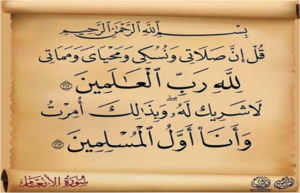 بِسْمِ ٱللَّهِ ٱلرَّحْمَٰنِ ٱلرَّحِيمِ
قُلْ إِنَّ صَلَاتِى وَنُسُكِى وَمَحْيَاىَ وَمَمَاتِى
لِلَّهِ رَبِّ ٱلْعَٰلَمِينَ
لَا شَرِيكَ لَهُۥ ۖ وَبِذَٰلِكَ أُمِرْتُ
وَأَنَا۠ أَوَّلُ ٱلْمُسْلِمِينَ
سُورَةُ الأَنْعَام